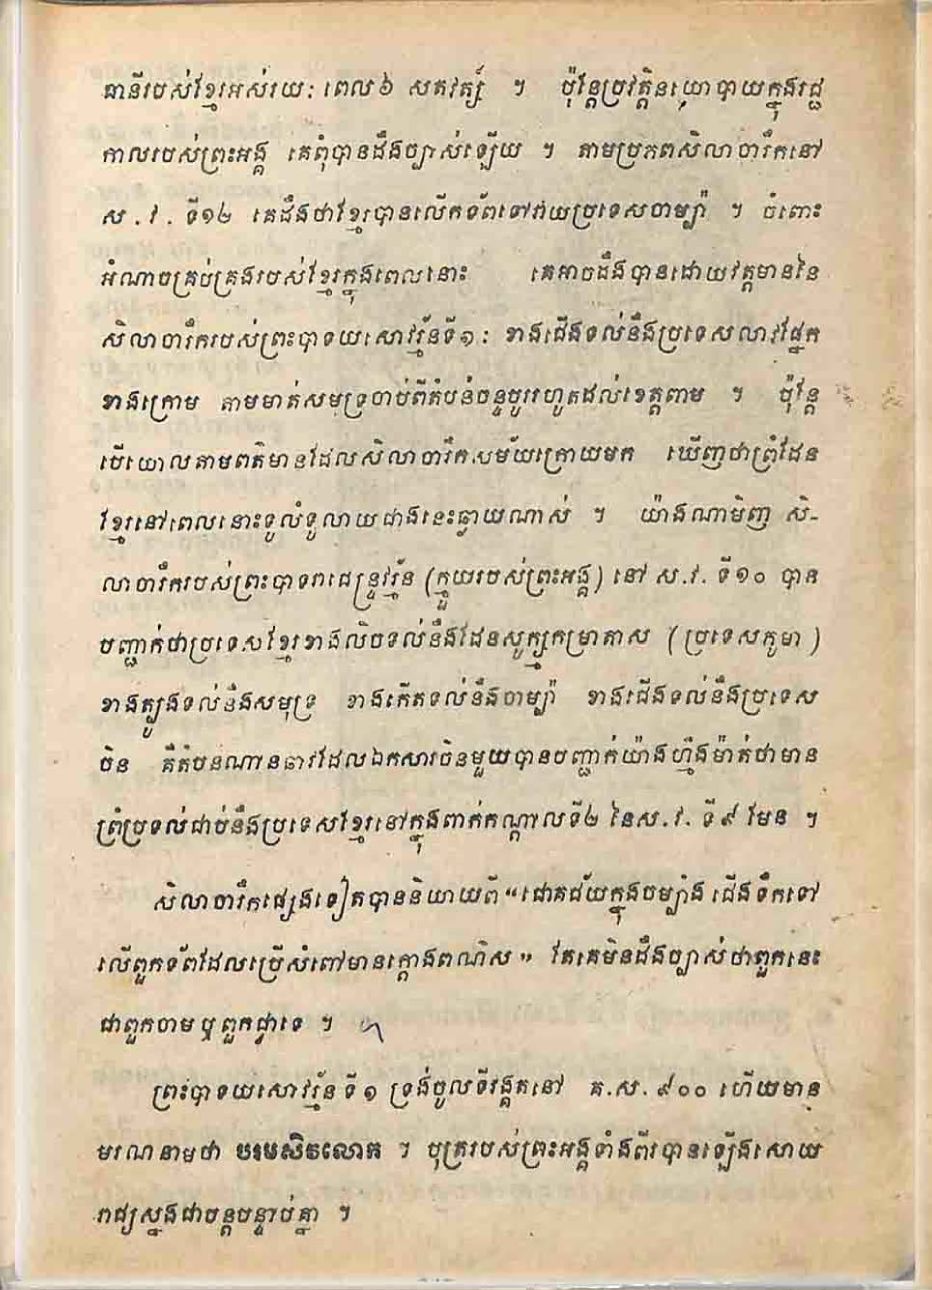 ធានីរបស់ខ្មែរអស់រយៈពេល៦ សតវត្ស៍ ។ ប៉ុន្តែប្រវត្តិនយោបាយក្នុងរជ្ជ
កាលរបស់ព្រះអង្គ គេពុំបានដឹងច្បាស់ឡើយ ។ តាមប្រភពសិលាចារឹកនៅ
ស.វ. ទី១២ គេដឹងថាខ្មែរបានលើកទ័ពទៅវាយប្រទេសចាម្ប៉ា ។ ចំពោះ
អំណាចគ្រប់គ្រងរបស់ខ្មែរក្នុងពេលនោះ គេអាចដឹងបានដោយវត្តមាននៃ
សិលាចារឹករបស់ព្រះបាទយសោវរ្ម័នទី១: ខាងជើងទល់នឹងប្រទេសលាវផ្នែក
ខាងក្រោម តាមមាត់សមទ្រចាប់ពីតំបន់ចន្ទបូររហូតដល់ខេត្តពាម ។ ប៉ុន្តែ
បើយោលតាមពត៌មានដែលសិលាចារឹកសម័យក្រោយមក ឃើញថាព្រំដែន
ខ្មែរនៅពេលនោះទូលំទូលាយជាងនេះឆ្ងាយណាស់ ។ យ៉ាងណាមិញ សិ-
លាចារឹករបស់ព្រះបាទរាជេន្ទ្រវរ្ម័ន (ក្មួយរបស់ព្រះអង្គ) នៅ ស.វ. ទី១០ បាន
បញ្ជាក់ថាប្រទេសខ្មែរខាងលិចទល់នឹងដែនសូក្ស្មកម្រាតាស (ប្រទេសភូមា)
ខាងត្បូងទល់នឹងសមុទ្រ ខាងកើតទល់នឹងចាម្ប៉ា ខាងជើងទល់នឹងប្រទេស
ចិន គឺតំបន់ណានឆាវដែលឯកសារចិនមួយបានបញ្ជាក់យ៉ាងហ្មឹងម៉ាត់ថាមាន
ព្រំប្រទល់ជាប់នឹងប្រទេសខ្មែរនៅក្នុងពាក់កណ្តាលទី២ នៃស.វ. ទី៩ មែន ។
សិលាចារឹកផ្សេងទៀតបាននិយាយពី “ជោគជ័យក្នុងចម្បាំងជើងទឹកទៅ
លើពួកទ័ពដែលប្រើសំពៅមានក្តោងពណ៌ស” តែគេមិនដឹងច្បាស់ថាពួកនេះ
ជាពួកចាមឬពួកជ្វាទេ ។
ព្រះបាទយសោវរ្ម័នទី១ ទ្រង់ចូលទីវង្គតនៅ គ.ស. ៩០០ ហើយមាន
មរណនាមថា បរមសិវលោក ។ បុត្ររបស់ព្រះអង្គទាំងពីរបានឡើងសោយ
រាជ្យស្នងជាបន្តបន្ទាប់គ្នា ។